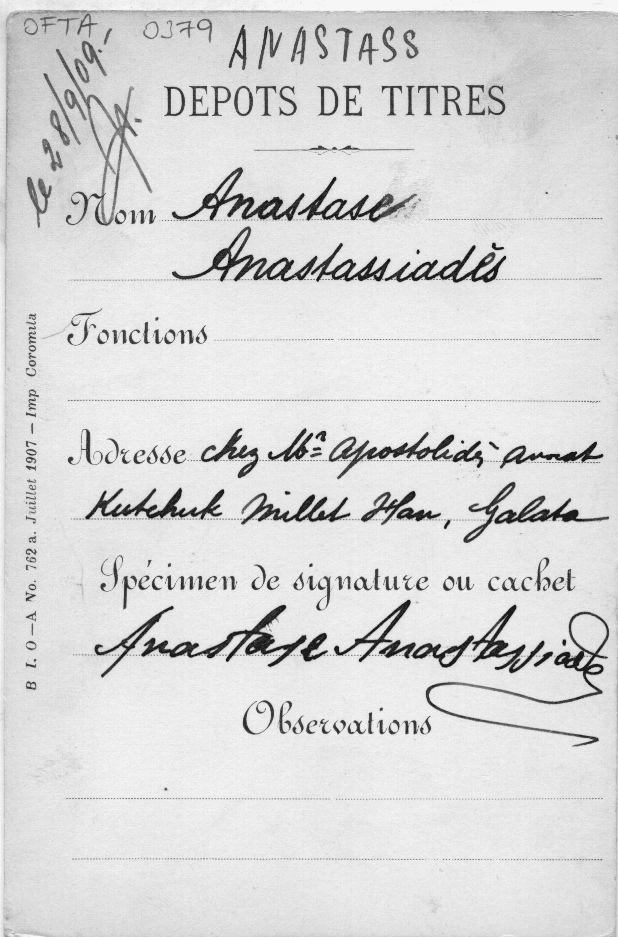 OFTA 0379
ANASTASS
le 28/9/09.
DEPOTS DE TITRES
Nom Anastase
Anastassiadès
Fonctions
Adresse chez Mr Apostolidès avocat
Kutchuk Millet Han, Galata
Spécimen de signature ou cachet
Anastase Anastassiadès
Observations
B I. O — A No. 762 a. Juillet 1907 — Imp Coromila